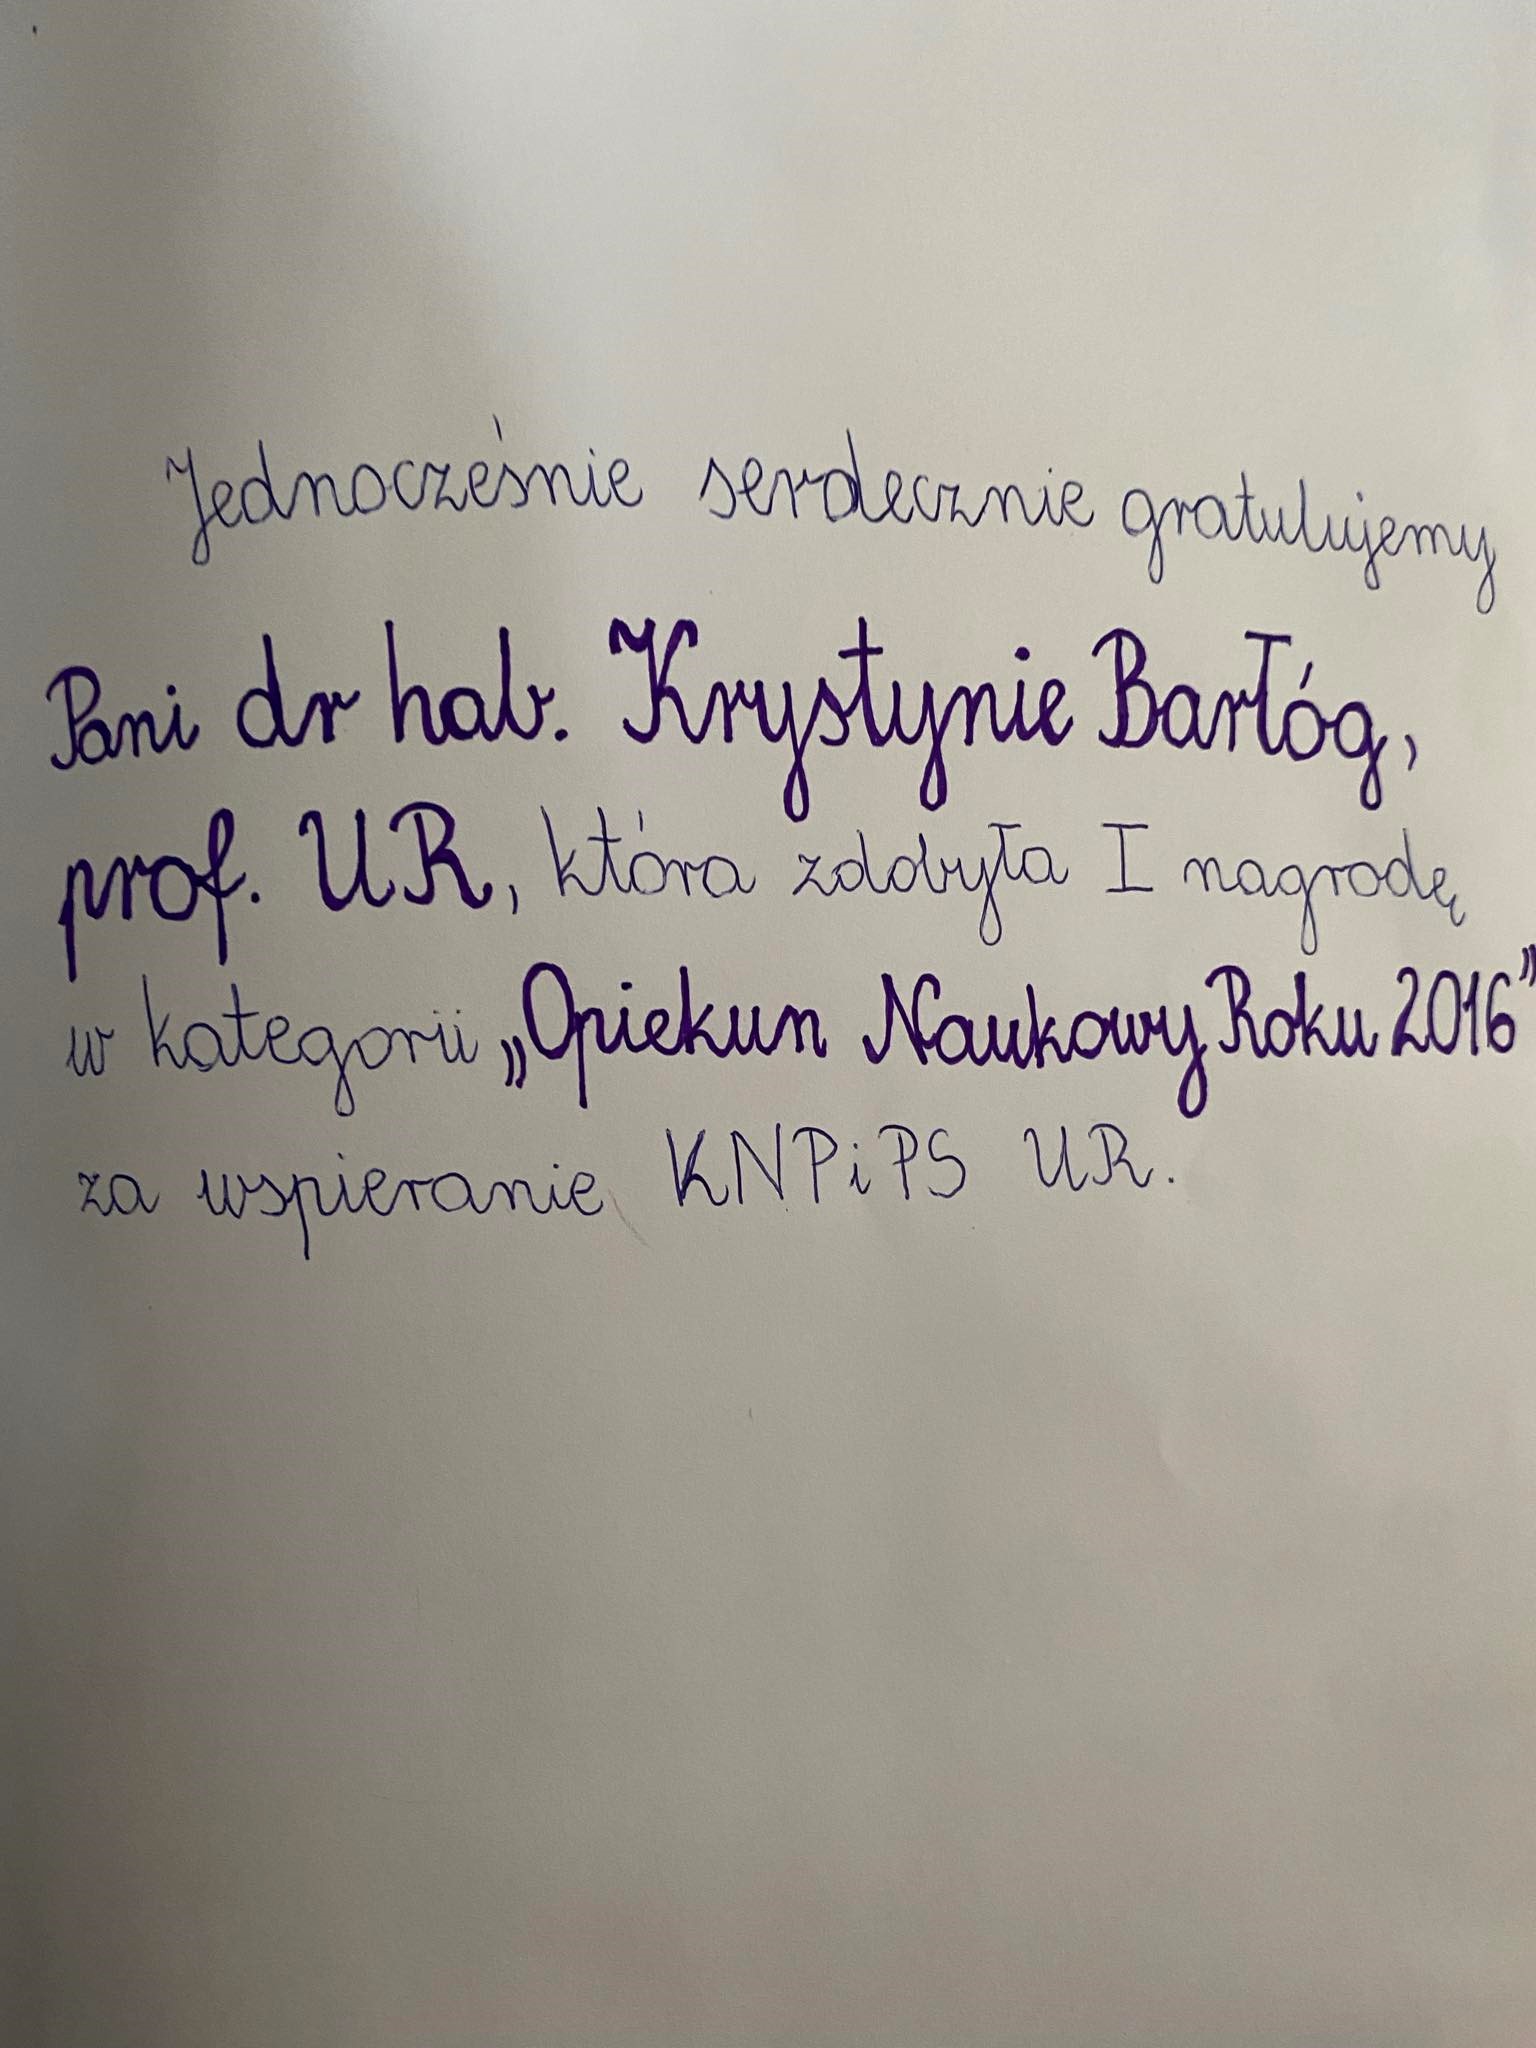 Jednocześnie serdecznie gratulujemy
Pani dr hab. Krystynie Barłóg,
prof. UR, która zdobyła I nagrodę
w kategorii „Opiekun Naukowy Roku 2016”
za wspieranie KNPiPS UR.